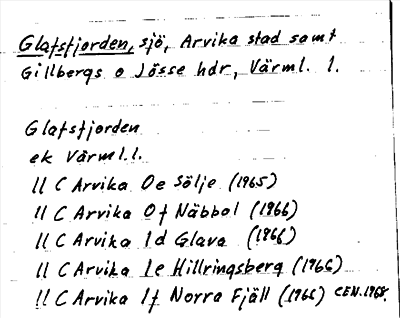 Glafsfjorden, sjö, Arvika stad samt
Gillbergs o Jösse hdr, Värml. l.
Glafsfjorden
ek Värml.l.
11 C Arvika 0e Sölje (1965)
11 C Arvika 0f Näbbol (1966)
11 C Arvika 1d Glava (1966)
11 C Arvika 1e Hillringsberg (1966)
11 C Arvika 1f Norra Fjäll (1966) CEN.1968.